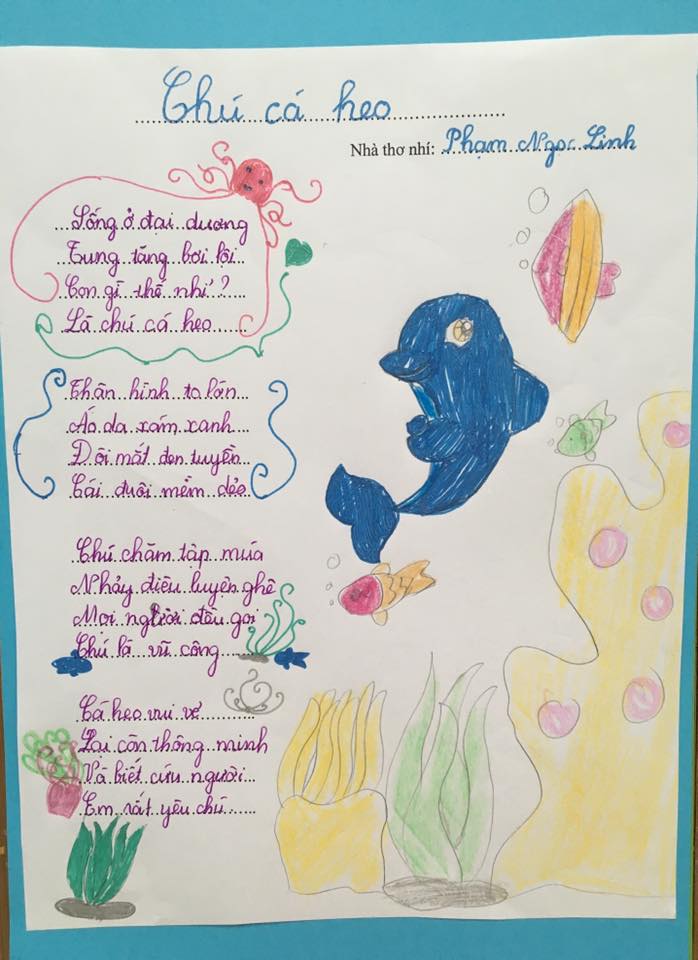 Chú cá heo
Nhà thơ nhí: Phạm Ngọc Linh
Sống ở đại dương
Tung tăng bơi lội
Con gì thế nhỉ?
Là chú cá heo
Thân hình to lớn
Áo da xám xanh
Đôi mắt đen tuyền
Cái đuôi mềm dẻo
Chú chăm tập múa
Nhảy điệu luyện ghê
Mọi người đều gọi
Chú là vũ công
Cá heo vui vẻ
Lại còn thông minh
Và biết cứu người
Em rất yêu chú